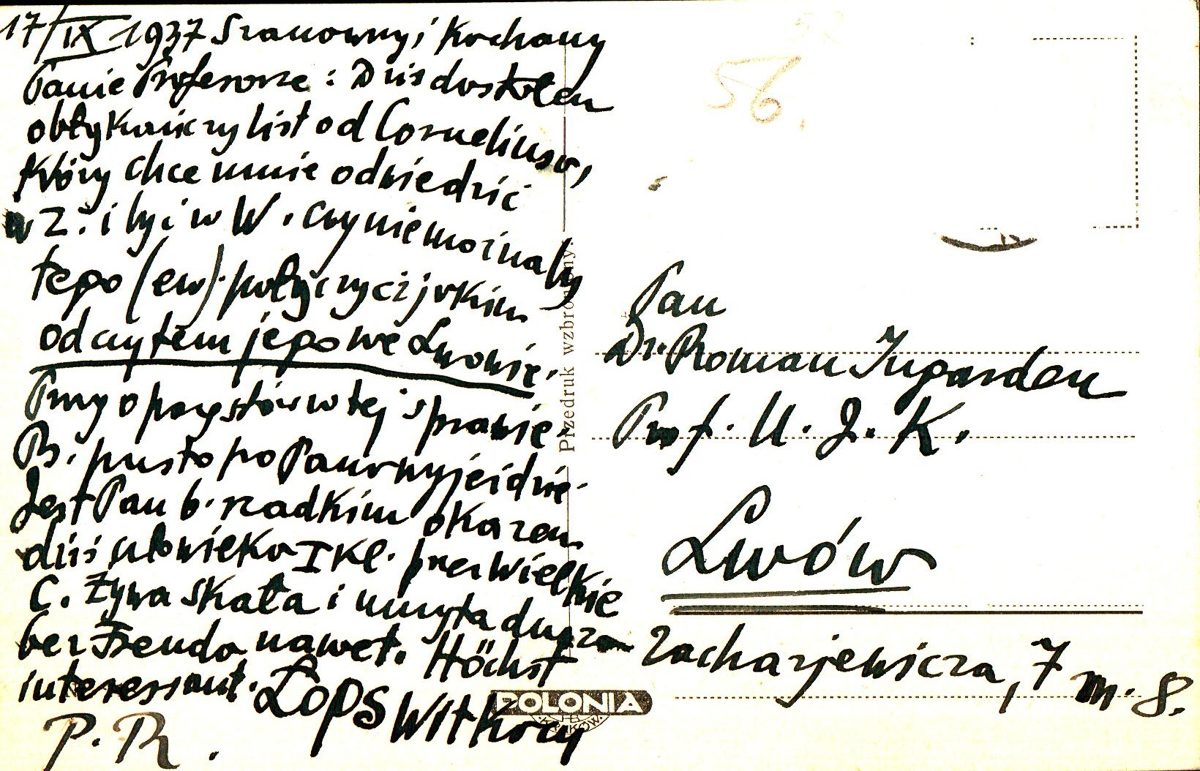 17/IX 1937 Szanowny i Kochany
Panie Profesorze: Dziś dostałem
obłykańczy list od Corneliusa,
który chce mnie odwiedzić
w Z. i być w W. czy nie możnaby
tego (ew). połączyć z jakim
odczytem jego we Lwowie.
Przyopczystów w tej sprawie.
B. pusto po Pana wyjeździe.
Jest Pan b. rzadkim okazem
dziś człowieka I kl. przez Wielkie
C. Żywa skała i umyta dusza
bez Freuda nawet. Höchst
interessant. Łops Witkacy
P. R.
56.
Pan
Dr. Roman Ingarden
Prof. U. J. K.
Lwów
Zacharjewicza, 7 m. 8.
Przedruk wzbroniony.
POLONIA
KRAKÓW